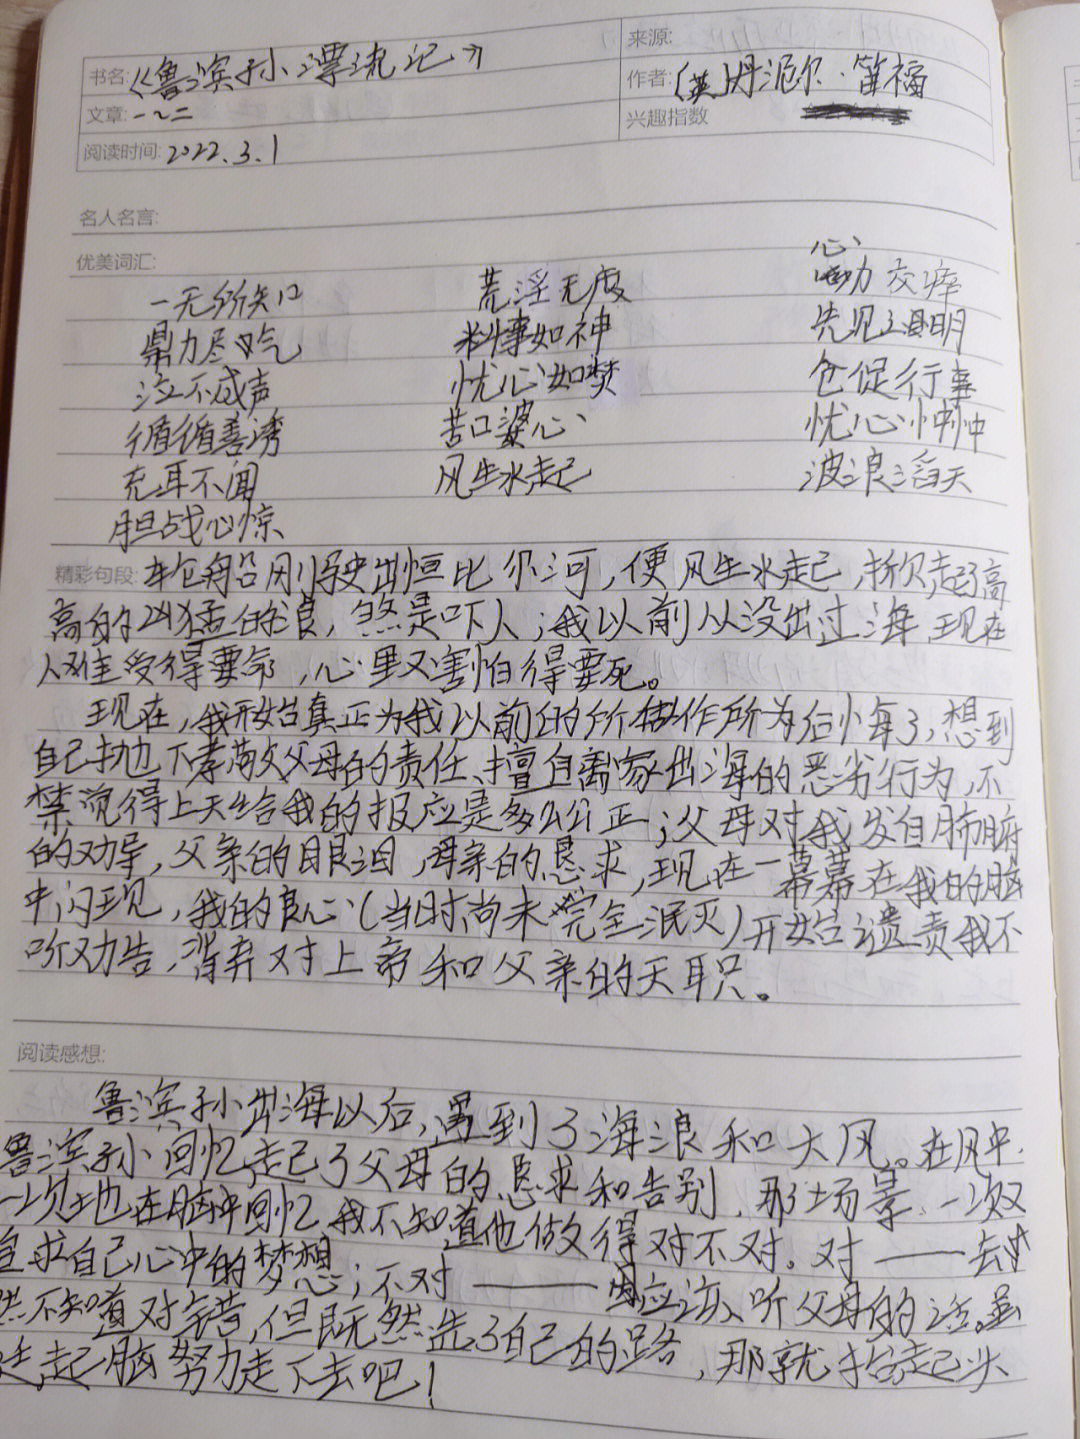 书名:《鲁滨孙漂流记》
来源:
作者:(英)丹泥尔·笛福
文章:一~二
兴趣指数
阅读时间:2022.3.1
名人名言:
优美词汇:
一无所知 荒淫无度 心
鼎力尽吃 料事如神 劬力交瘁
泣不成声 忧心如焚 先见之明
循循善诱 苦口婆心 仓促行事
充耳不闻 风生水起 忧心忡忡
胆战心惊 波浪滔天
精彩句段:本船刚驶出恒比尔河,便风生水起,掀起了高
高的凶猛的浪,煞是吓人;我以前从没出过海,现在
人难受得要命,心里又害怕得要死。
现在,我开始真正为我以前的所做作所为后悔了,想到
自己抛下孝敬父母的责任、擅自离家出海的恶劣行为,不
禁觉得上天给我的报应是多么公正;父母对我发自肺腑
的劝导,父亲的眼泪,母亲的恳求,现在一幕幕在我的脑
中闪现,我的良心(当时尚未完全泯灭)开始谴责我不
听劝告,背弃对上帝和父亲的天职。
阅读感想:
鲁滨孙出海以后,遇到了海浪和大风。在风中,
鲁滨孙回忆起了父母的恳求和告别,那场景,一次又
一次地在脑中回忆,我不知道他做得对不对。对——去
追求自己心中的梦想;不对——因应该听父母的话。虽
然不知道对错,但既然选了自己的路,那就抬起头
起脑努力走下去吧!